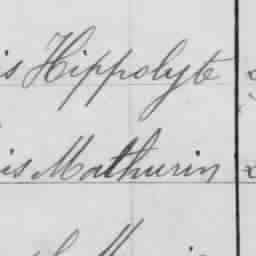 is Hippolyte
is Mathurin